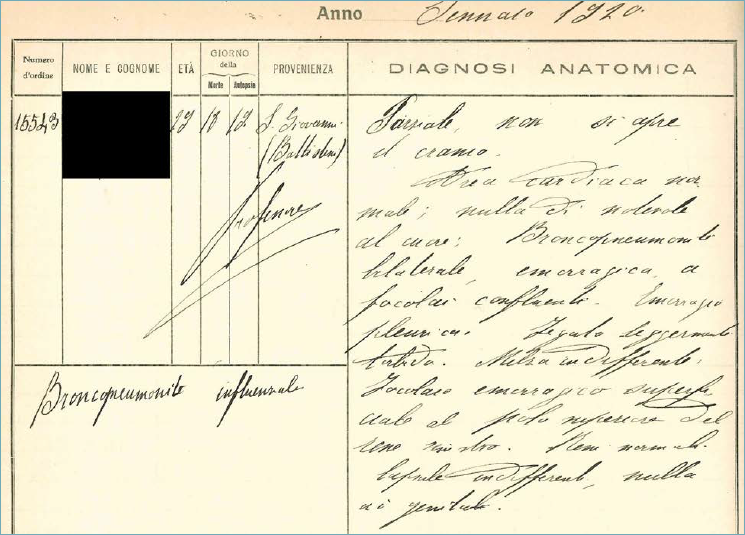 Anno Gennaio 1920
Numero d'ordine
NOME E COGNOME
ETÀ
GIORNO della
Morte
Autopsia
PROVENIENZA
DIAGNOSI ANATOMICA
15543
18
12
S. Giovanni
(Battistini)
Professore
Broncopneumonite influenzale
Parziale, non si apre
il cranio.
Area cardiaca nor
male; nulla di notevole
al cuore: Broncopneumonite
bilaterale, emorragica a
focolai confluenti. Emorragie
pleuriche. Fegato leggermente
torbido. Milza indifferente.
Focolaio emorragico superfi
ciale al polo superiore del
rene sinistro. Reni normali.
Capsule indifferenti, nulla
ai genitali.